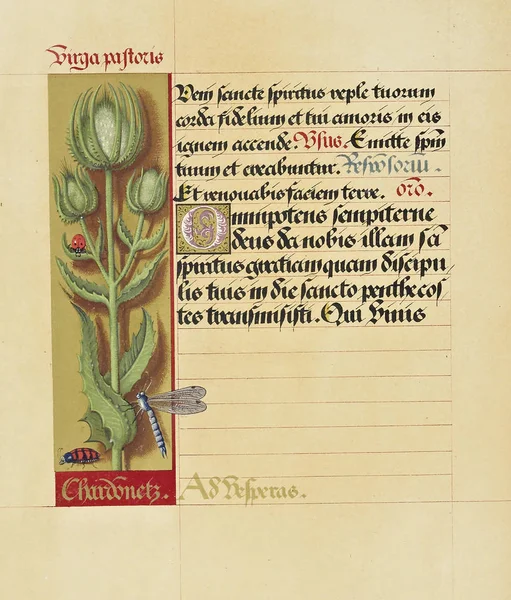 Virga pastoris
Veni sancte spiritus reple tuorum
corda fidelium et tui amoris in eis
ignem accende. Vsus. Emitte spm
tuum et creabuntur. Responsoriu.
Et renouabis faciem terre. oro.
Omnipotens sempiterne
deus da nobis illam sa
spiritus gratiam quam discipu
lis tuis in die sancto penthecos
tes transmisisti. Qui viuis
Chardonetz. Ad Vesperas.